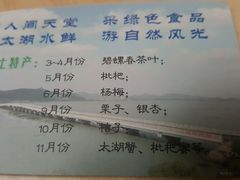 人间天堂 采绿色食品
太湖水鲜 游自然风光
土特产： 3-4月份 碧螺春茶叶；
5月份 枇杷；
6月份 杨梅；
9月份 栗子、银杏；
10月份 桔子；
11月份 太湖蟹、枇杷蜜等